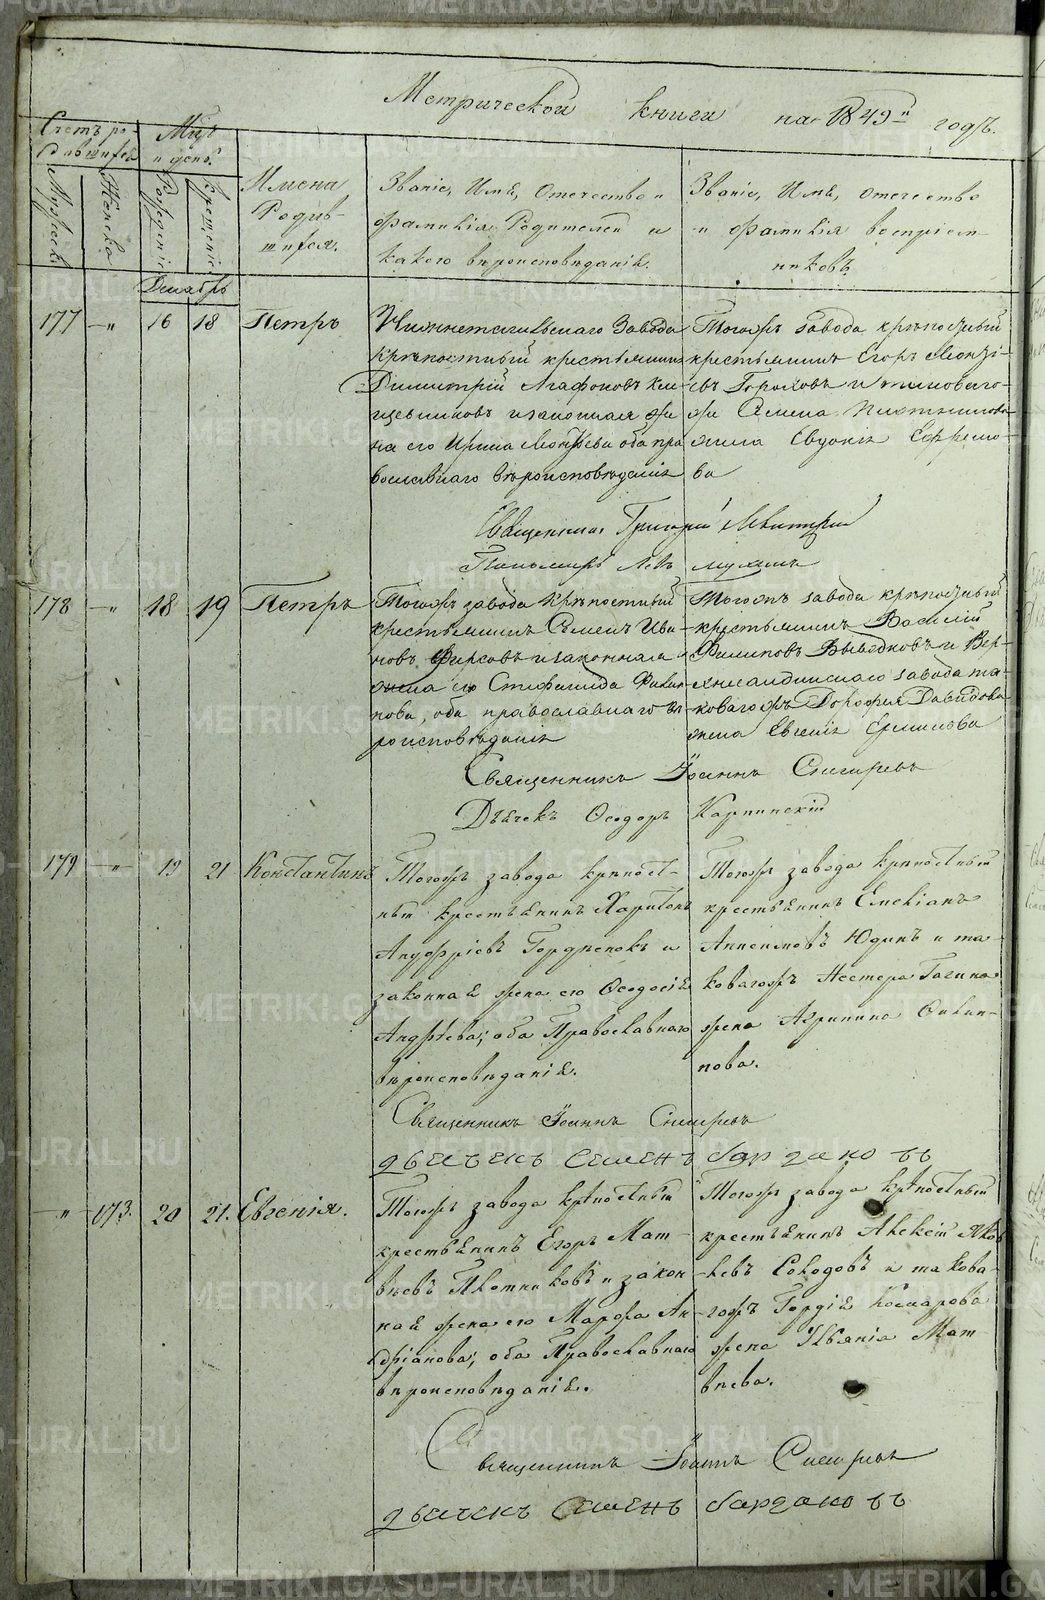 Метрической книги на 1849й годъ.
Счетъ ро-
дившихся
Мужеска
Женска
Мцъ
и день.
Рожденія
Крещенія
Имена
Родив-
шихся.
Званіе, Имя, Отчество и
фамилія Родителей и
какого вѣроисповѣданія.
Званіе, Имя, отчество
и фамилія воспріем-
никовъ.
Декабрь
177 —„ 16 18 Петръ
Нижнетагильскаго Завода
крѣпостный крестьянинъ
Димитрій Агафоновъ
и законная же
на его Ирина оба пра
вославнаго вѣроисповѣданія
Тогожъ завода крѣпостный
крестьянинъ Егоръ
евъ Гороховъ и таковаго-
же Семена Плотникова
жена Евдокія Ефремо-
ва
Священникъ Григорій
Пономарь Левъ
178 —„ 18 19 Петръ
Тогожъ завода крѣпостный
крестьянинъ Семенъ Ива-
новъ Фирсовъ и законная
жена его Стефанида Филип-
пова, оба православнаго вѣ-
роисповѣданія
Тогожъ завода крѣпостный
крестьянинъ Василій
Филиповъ и Вер-
хнесалдинскаго завода та-
коваго жъ Дорофея Давидова
жена Евгенія Ермилова
Священникъ Іоаннъ Снигиревъ
Дьячекъ Ѳеодоръ Карпинскій
179 —„ 19 21 Константинъ
Тогожъ завода крѣпост-
ный крестьянинъ Харитонъ
Ануфріевъ и
законная жена его Ѳеодосія
Андрѣева; оба Православнаго
вѣроисповѣданія.
Тогожъ завода крѣпостный
крестьянинъ Емеліанъ
Анисимовъ Юдинъ и та-
коваго жъ Нестера Гагина
жена Агрипина Филип-
пова.
Священникъ Іоаннъ Снигиревъ
дьечекъ Семенъ бардаковъ
—„ 173. 20 21. Евгенія.
Тогожъ завода крѣпостный
крестьянинъ Егоръ Мат-
вѣевъ Плотниковъ и закон
ная жена его Марфа Ан
дріанова; оба Православнаго
вѣроисповѣданія.
Тогожъ завода крѣпостный
крестьянинъ Алексій Яков
левъ Солодовъ и такова-
гожъ Гордія Комарова
жена Ульянія Мат-
вѣева.
Священникъ Іоаннъ Снигиревъ
дьечекъ Семенъ бардаковъ
METRIKI.GASO-URAL.RU